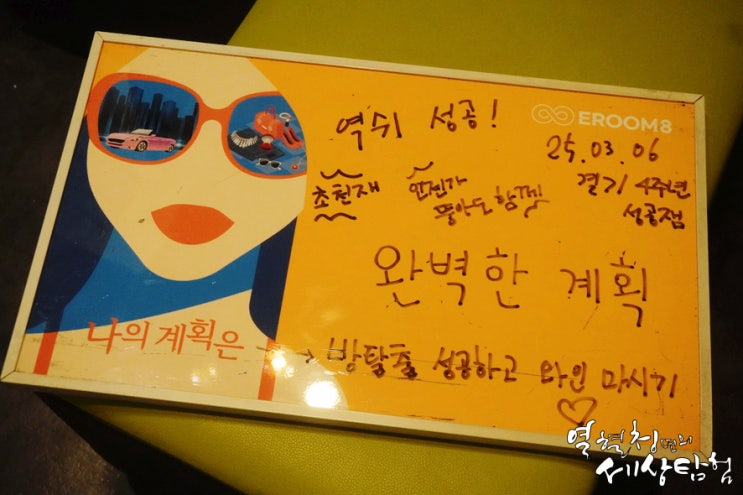 역쉬 성공!
EROOM8
25.03.06
초천재 언젠가
뚱아도 함께
경기 4주년
성공잼
완벽한 계획
나의 계획은 → 방탈출 성공하고 와인 마시기 ♡
열혈청년의
세상탐험